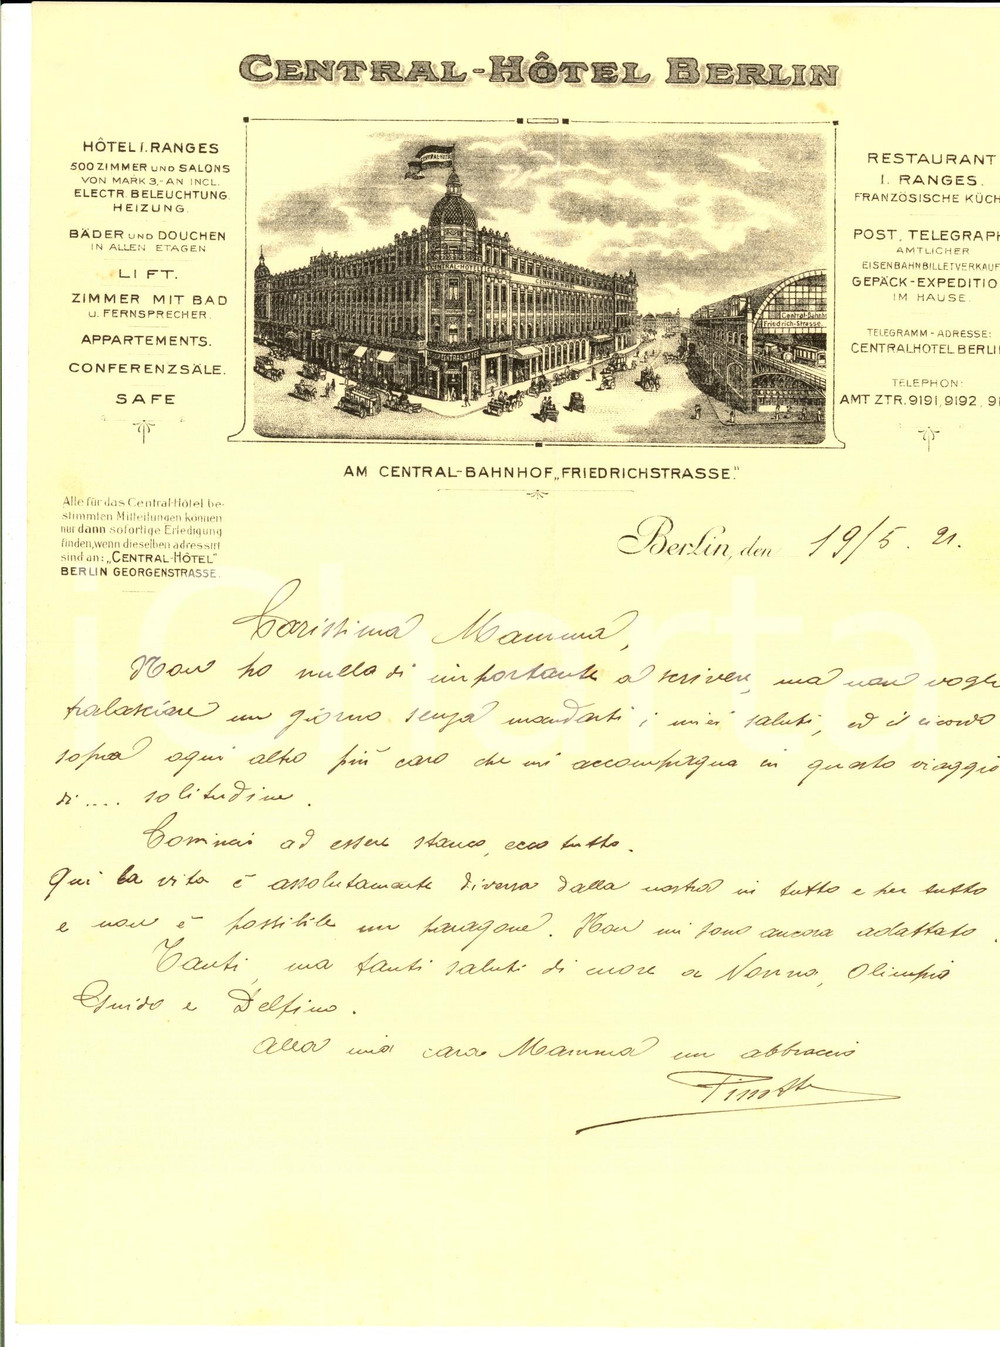 CENTRAL-HÔTEL BERLIN
HÔTEL I. RANGES
500 ZIMMER UND SALONS
VON MARK 3,- AN INCL.
ELECTR. BELEUCHTUNG.
HEIZUNG.
BÄDER UND DOUCHEN
IN ALLEN ETAGEN
LIFT.
ZIMMER MIT BAD
U. FERNSPRECHER.
APPARTEMENTS.
CONFERENZSÄLE.
SAFE
CENTRAL-HOTEL
Central-Bahnh
Friedrich-Strasse
RESTAURANT
I. RANGES.
FRANZÖSISCHE KÜCH
POST, TELEGRAPH
AMTLICHER
EISENBAHNBILLETVERKAUF
GEPÄCK-EXPEDITIO
IM HAUSE.
TELEGRAMM-ADRESSE:
CENTRALHOTEL BERLI
TELEPHON:
AMT ZTR. 9191, 9192, 91
AM CENTRAL-BAHNHOF „FRIEDRICHSTRASSE."
Alle für das Central-Hôtel be-
stimmten Mitteilungen können
nur dann sofortige Erledigung
finden, wenn dieselben adressirt
sind an: „CENTRAL-HÔTEL"
BERLIN GEORGENSTRASSE.
Berlin, den 19/5. 21.
Carissima Mamma,
Non ho nulla di importante a scrivere, ma non vogli
tralasciare un giorno senza mandarti i miei saluti, ed il ricordo
sopra ogni altro più caro che mi accompagna in questo viaggio
di .... solitudine.
Cominci ad essere stanco, ecco tutto.
Qui la vita è assolutamente diversa dalla nostra in tutto e per tutto
e non è possibile un paragone. Non mi sono ancora adattato.
Tanti, ma tanti saluti di cuore a Nonno, Olimpia
Guido e Delfino.
Alla mia cara Mamma un abbraccio
Pinotto